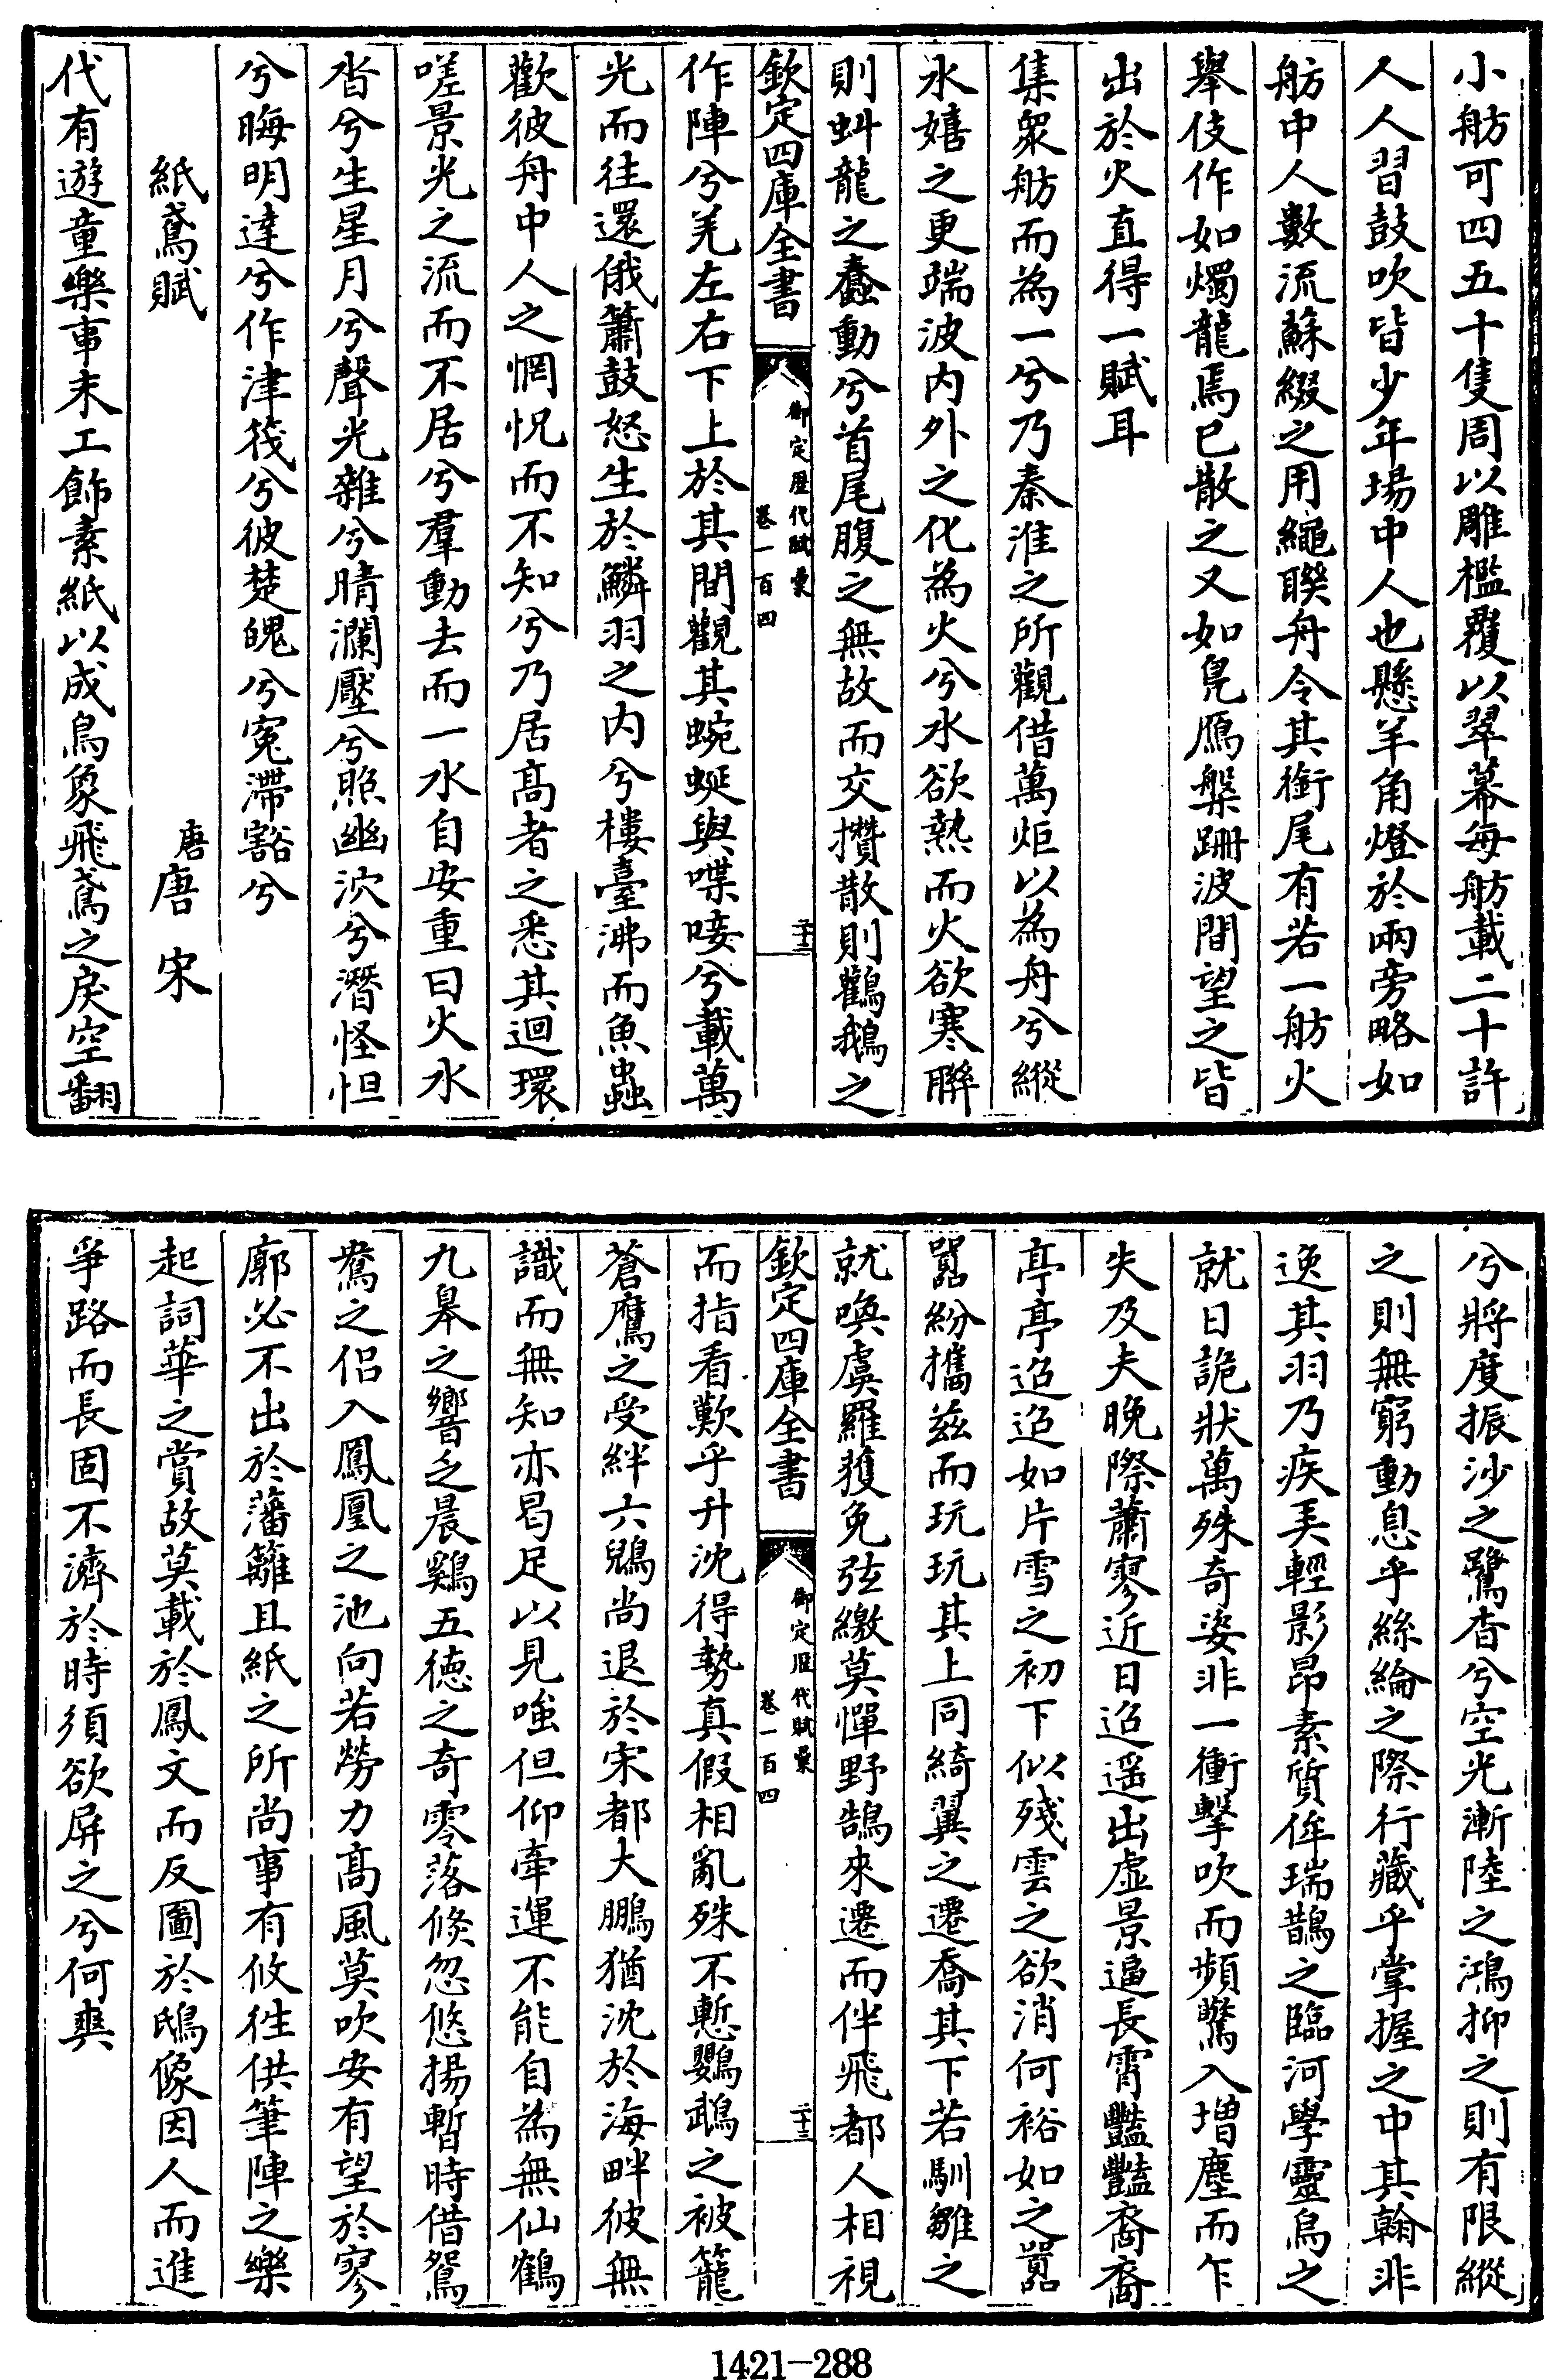 小舫可四五十隻周以雕檻覆以翠幕每舫載二十許
人人習鼓吹皆少年場中人也懸羊角燈於兩旁略如
舫中人數流蘇綴之用繩聨舟令其銜尾有若一舫火
舉伎作如燭龍焉已散之又如鳬鴈槃跚波間望之皆
出於火直得一賦耳
集衆舫而為一兮乃秦淮之所觀借萬炬以為舟兮縱
水嬉之更端波内外之化為火兮水欲熱而火欲寒聯
則虯龍之蠢動兮首尾腹之無故而交攢散則鸛鵝之
欽定四庫全書
御定歴代賦彙
卷一百四
二十二
作陣兮羌左右下上於其間觀其蜿蜒與喋唼兮載萬
光而往還俄簫鼓怒生於鱗羽之内兮樓臺沸而魚蟲
歡彼舟中人之惘怳而不知兮乃居髙者之悉其迴環
嗟景光之流而不居兮羣動去而一水自安重曰火水
沓兮生星月兮聲光雜兮晴瀾壓兮照幽泬兮潛怪怛
兮晦明達兮作津筏兮彼楚魄兮寃滯豁兮
紙鳶賦
唐唐宋
代有遊童樂事末工飾素紙以成鳥象飛鳶之戾空翻
兮將度振沙之鷺杳兮空光漸陸之鴻抑之則有限縱
之則無窮動息乎絲綸之際行藏乎掌握之中其翰非
逸其羽乃疾美輕影昂素質侔瑞鵲之臨河學靈烏之
就日詭狀萬殊奇姿非一衝擊吹而頻驚入増塵而乍
失及夫晚際蕭寥近日迢遥出虚景逼長霄豔豔裔裔
亭亭迢迢如片雪之初下似殘雲之欲消何裕如之嚻
嚻紛攜兹而玩玩其上同綺翼之遷喬其下若馴雛之
就喚虞羅獲免弦繳莫憚野鵠來遷而伴飛都人相視
欽定四庫全書
御定歴代賦彙
卷一百四
二十三
而指看歎乎升沈得勢真假相亂殊不慙鸚鵡之被籠
蒼鷹之受絆六鷁尚退於宋都大鵬猶沈於海畔彼無
識而無知亦曷足以見嗤但仰牽運不能自為無仙鶴
九臯之響乏晨鷄五徳之奇零落倐忽悠揚暫時借鴛
鴦之侣入鳳凰之池向若勞力髙風莫吹安有望於寥
廓必不出於藩籬且紙之所尚事有攸徃供筆陣之樂
起詞華之賞故莫載於鳳文而反圖於鴟像因人而進
爭路而長固不濟於時須欲屏之兮何爽
1421-288